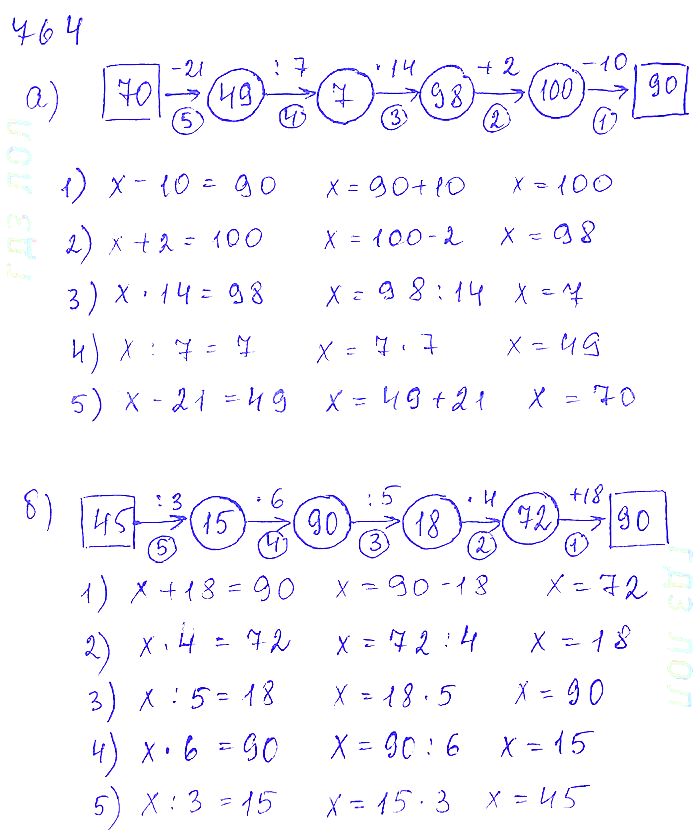 764
а) 70 -21 49 : 7 7 · 14 98 + 2 100 -10 90
5 4 3 2 1
1) x - 10 = 90 x = 90+10 x = 100
2) x + 2 = 100 x = 100-2 x = 98
3) x · 14 = 98 x = 98 : 14 x = 7
4) x : 7 = 7 x = 7 · 7 x = 49
5) x - 21 = 49 x = 49+21 x = 70
б) 45 : 3 15 · 6 90 : 5 18 · 4 72 +18 90
5 4 3 2 1
1) x + 18 = 90 x = 90 - 18 x = 72
2) x · 4 = 72 x = 72 : 4 x = 18
3) x : 5 = 18 x = 18 · 5 x = 90
4) x · 6 = 90 x = 90 : 6 x = 15
5) x : 3 = 15 x = 15 · 3 x = 45